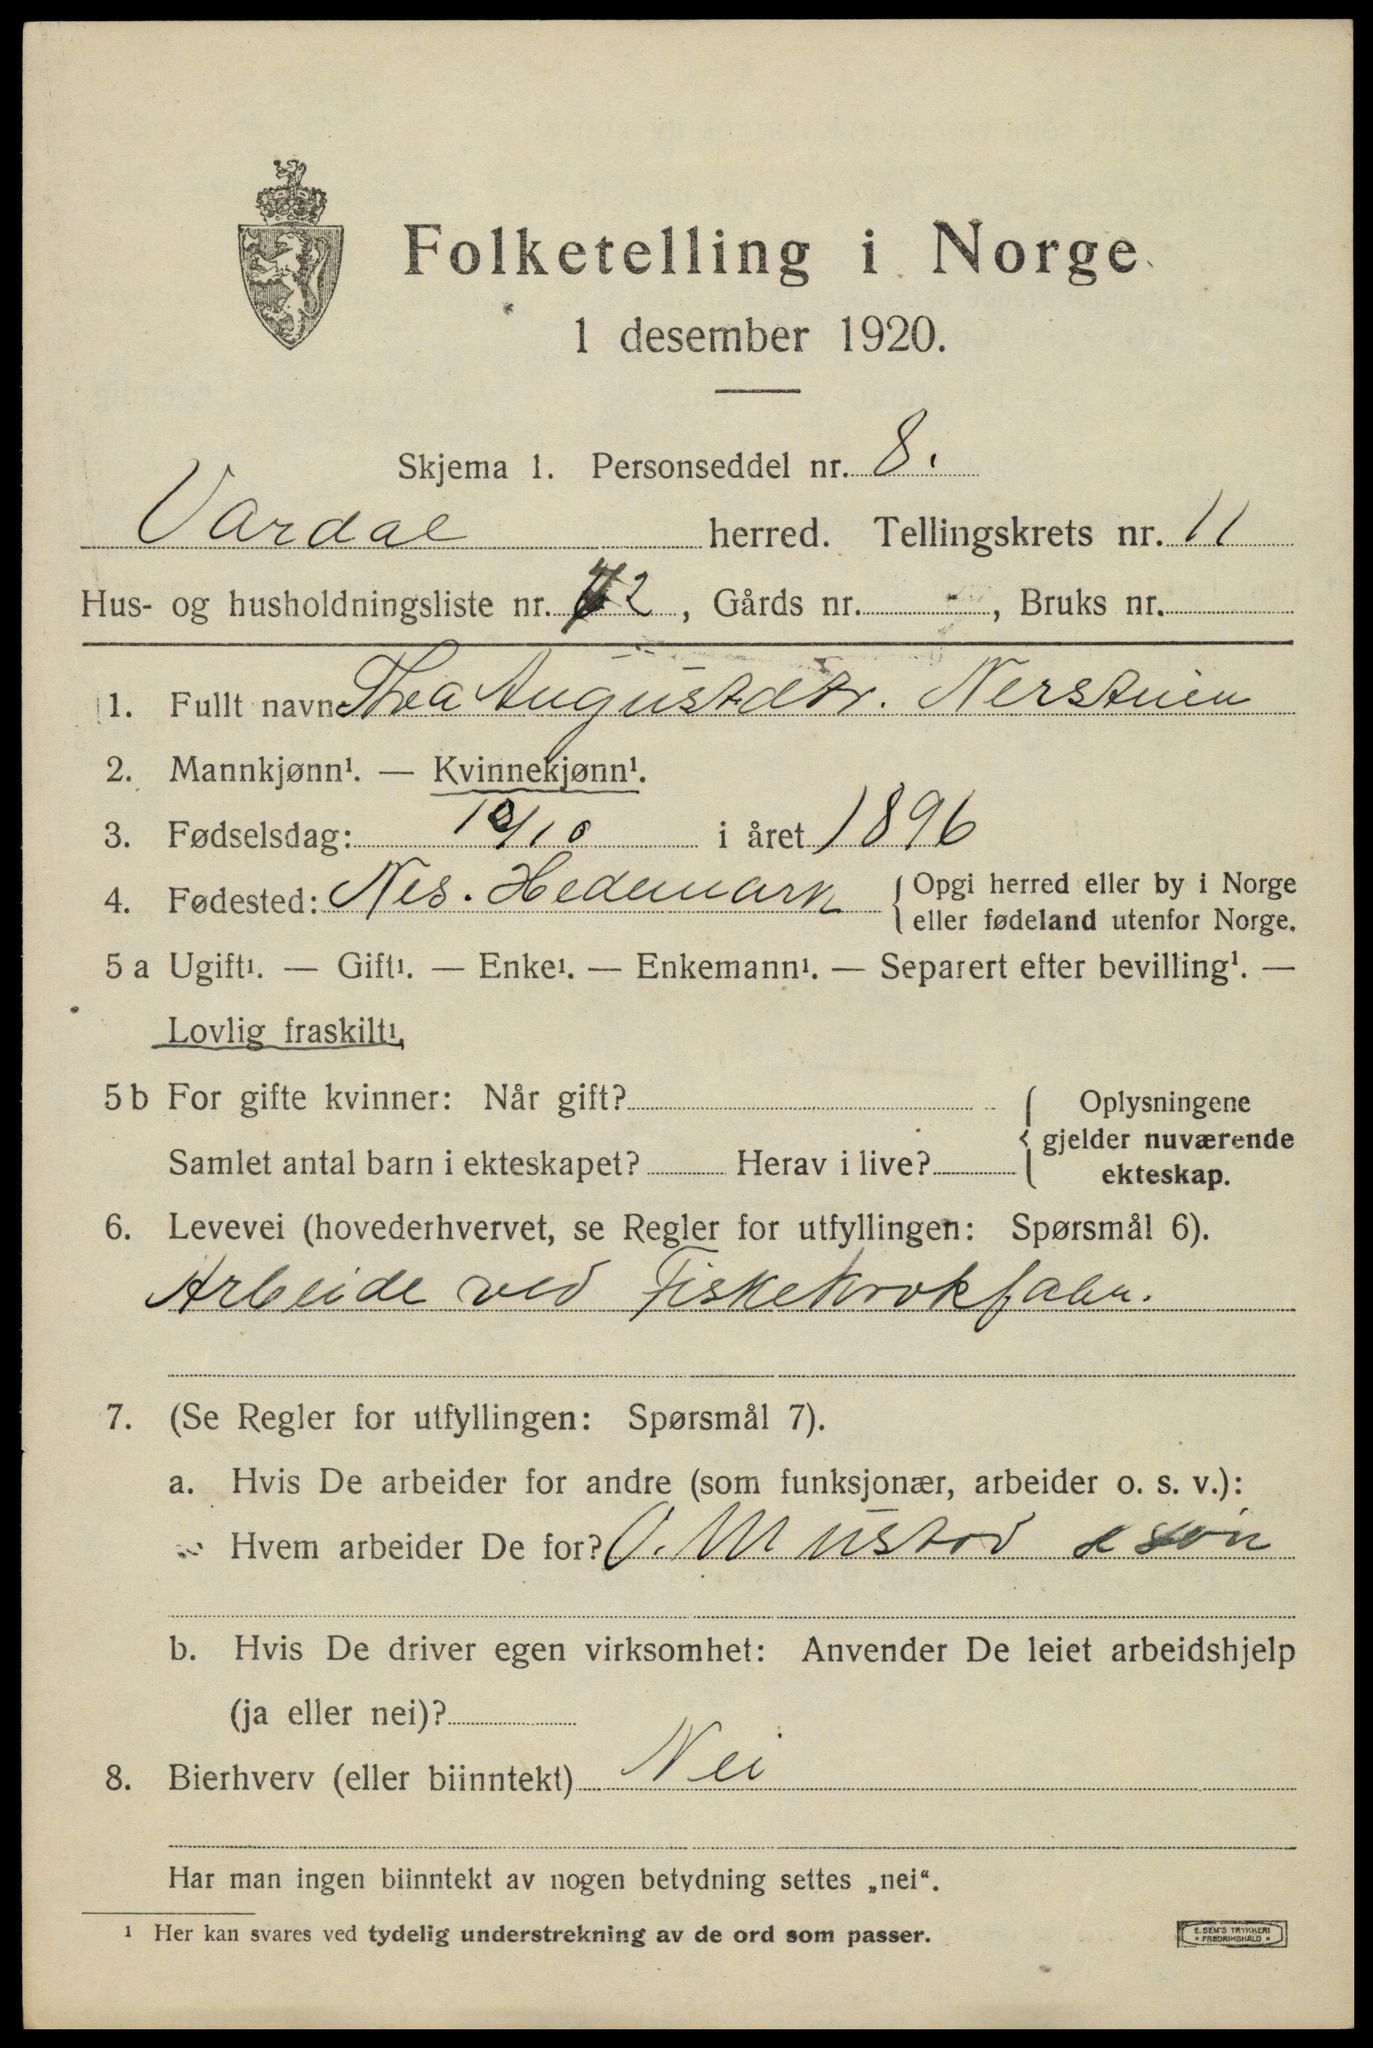 Folketelling i Norge
1 desember 1920.
Skjema 1. Personseddel nr. 8.
Vardal herred. Tellingskrets nr. 11
Hus- og husholdningsliste nr. 42, Gårds nr. , Bruks nr.
1. Fullt navn Thea Augustdtr. Nerstuen
2. Mannkjønn¹. — Kvinnekjønn¹.
3. Fødselsdag: 10/10 i året 1896
4. Fødested: Nes. Hedemark { Opgi herred eller by i Norge
eller fødeland utenfor Norge.
5 a Ugift¹. — Gift¹. — Enke¹. — Enkemann¹. — Separert efter bevilling¹. —
Lovlig fraskilt¹.
5 b For gifte kvinner: Når gift? { Oplysningene
gjelder nuværende
Samlet antal barn i ekteskapet? Herav i live?
ekteskap.
6. Levevei (hovederhvervet, se Regler for utfyllingen: Spørsmål 6).
Arbeide ved Fiskekrokfabr.
7. (Se Regler for utfyllingen: Spørsmål 7).
a. Hvis De arbeider for andre (som funksjonær, arbeider o. s. v.):
Hvem arbeider De for? O. Mustad & søn
b. Hvis De driver egen virksomhet: Anvender De leiet arbeidshjelp
(ja eller nei)?
8. Bierhverv (eller biinntekt) Nei
Har man ingen biinntekt av nogen betydning settes „nei“.
¹ Her kan svares ved tydelig understrekning av de ord som passer.
E. SEM'S TRYKKERI
FREDRIKSHALD